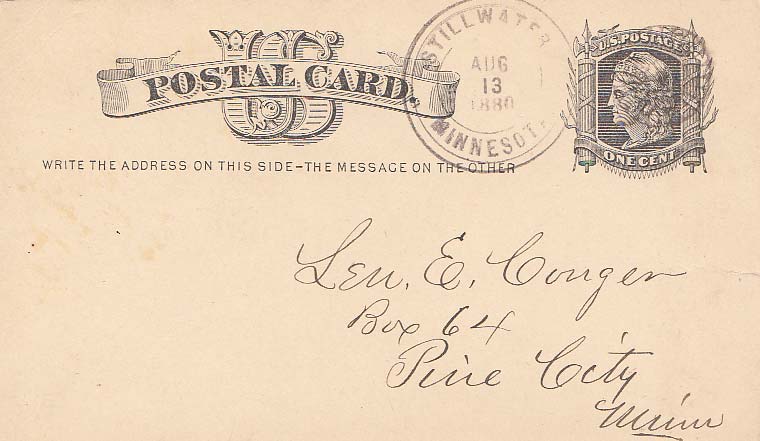 U.S. POSTAGE
US
POSTAL CARD.
STILLWATER
AUG
13
1880
MINNESOTA
ONE CENT
WRITE THE ADDRESS ON THIS SIDE–THE MESSAGE ON THE OTHER
Len. E. Conger
Box 64
Pine City
Minn